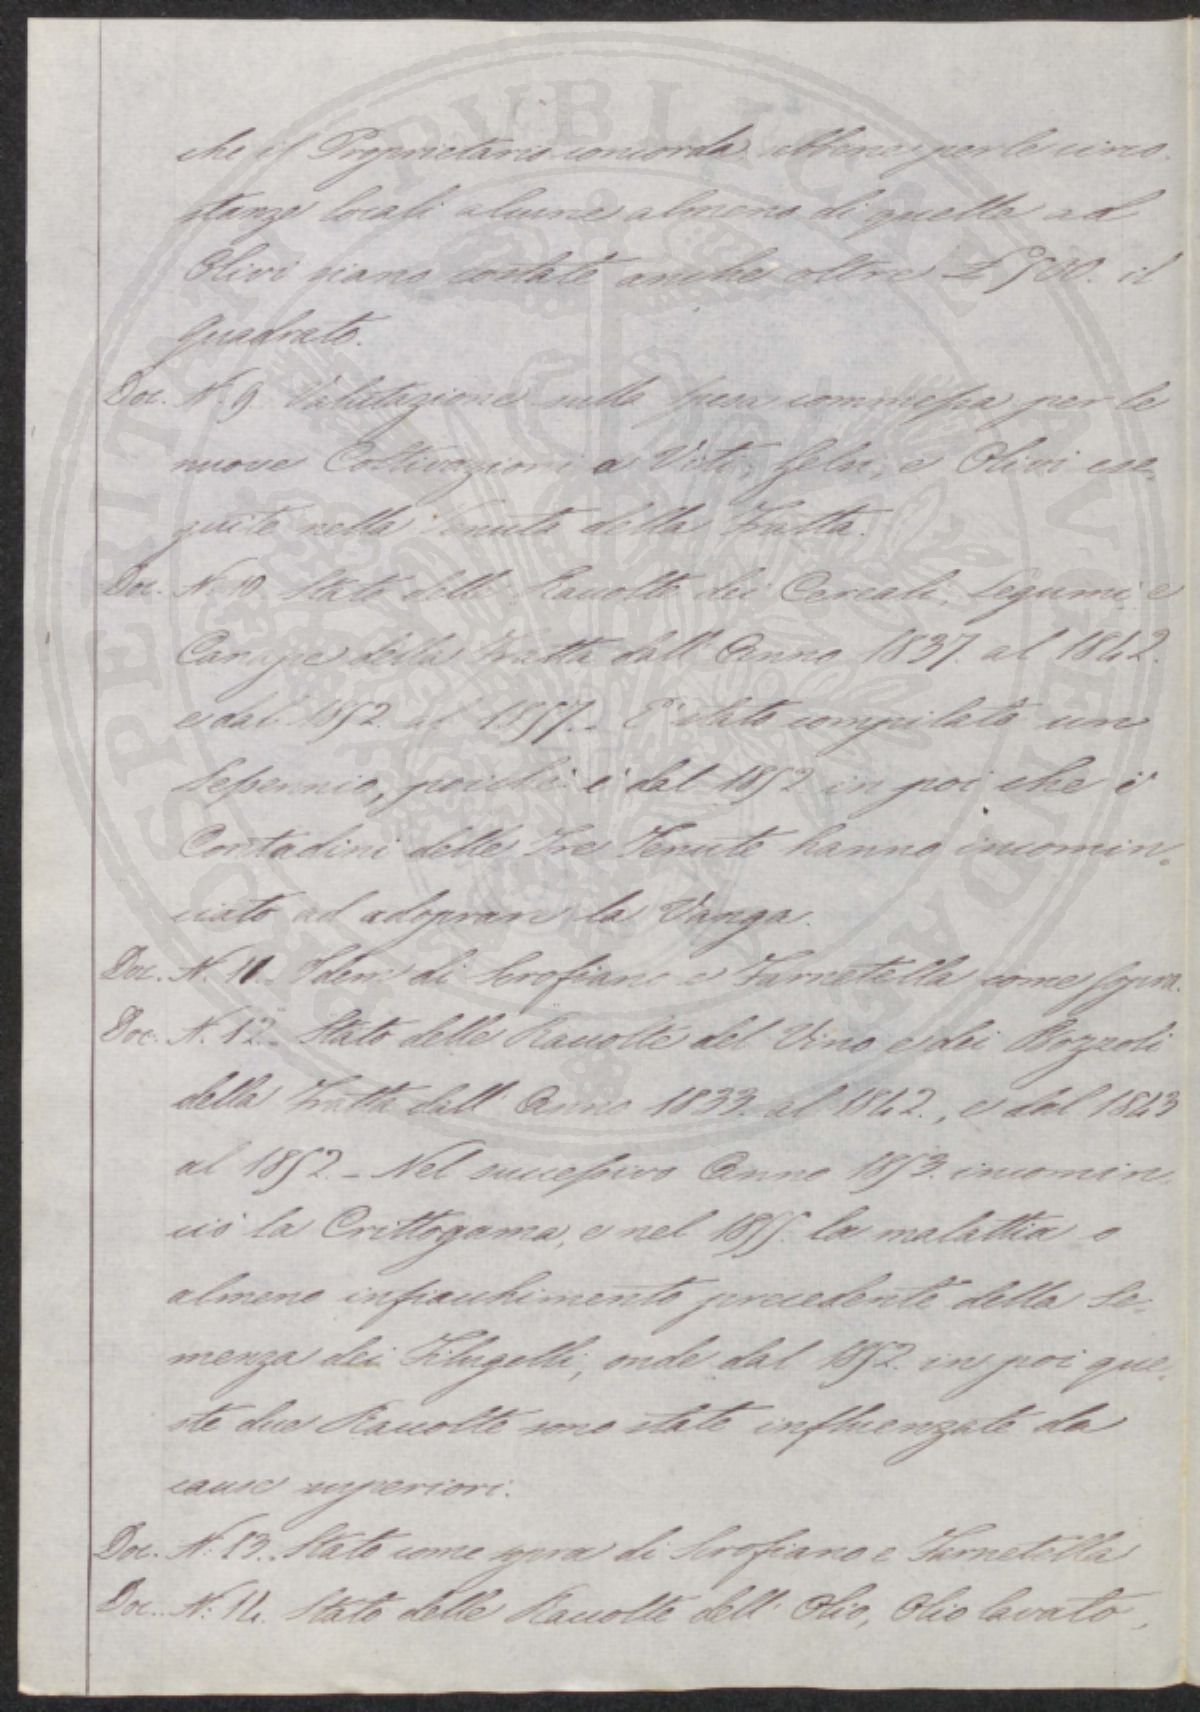 che il Proprietario concorda sebbene per le circo-
stanze locali alcune almeno di quelle ad
Olivi siano costate anche oltre £ 900. il
quadrato.
Doc. N. 9. Valutazione sulla spesa commessa per le
nuove Coltivazioni a Viti, Gelsi, e Olivi ese-
guite nella Tenuta della Fratta.
Doc. N. 10. Stato delle Raccolte dei Cereali, Legumi, e
Canape della Fratta dall' Anno 1837. al 1842.
e dal 1852. al 1857. - E' stato compilato un
Sessennio, poiché è dal 1852 in poi che i
Contadini delle Tre Tenute hanno incomin-
ciato ad adoprare la Vanga.
Doc. N. 11. Idem di Scrofiano e Farnetella come sopra.
Doc. N. 12. Stato delle Raccolte del Vino e dei Bozzoli
della Fratta dall' Anno 1833. al 1842., e dal 1843
al 1852. - Nel successivo Anno 1853. incomin-
ciò la Crittogama, e nel 1855. la malattia o
almeno infiacchimento precedente della Se-
menza dei Filugelli, onde dal 1852. in poi que-
ste due Raccolte sono state influenzate da
cause superiori.
Doc. N. 13. Stato come sopra di Scrofiano e Farnetella
Doc. N. 14. Stato delle Raccolte dell' Olio, Olio lavato,
PROSPERITATI PUBLICAE AUGENDAE